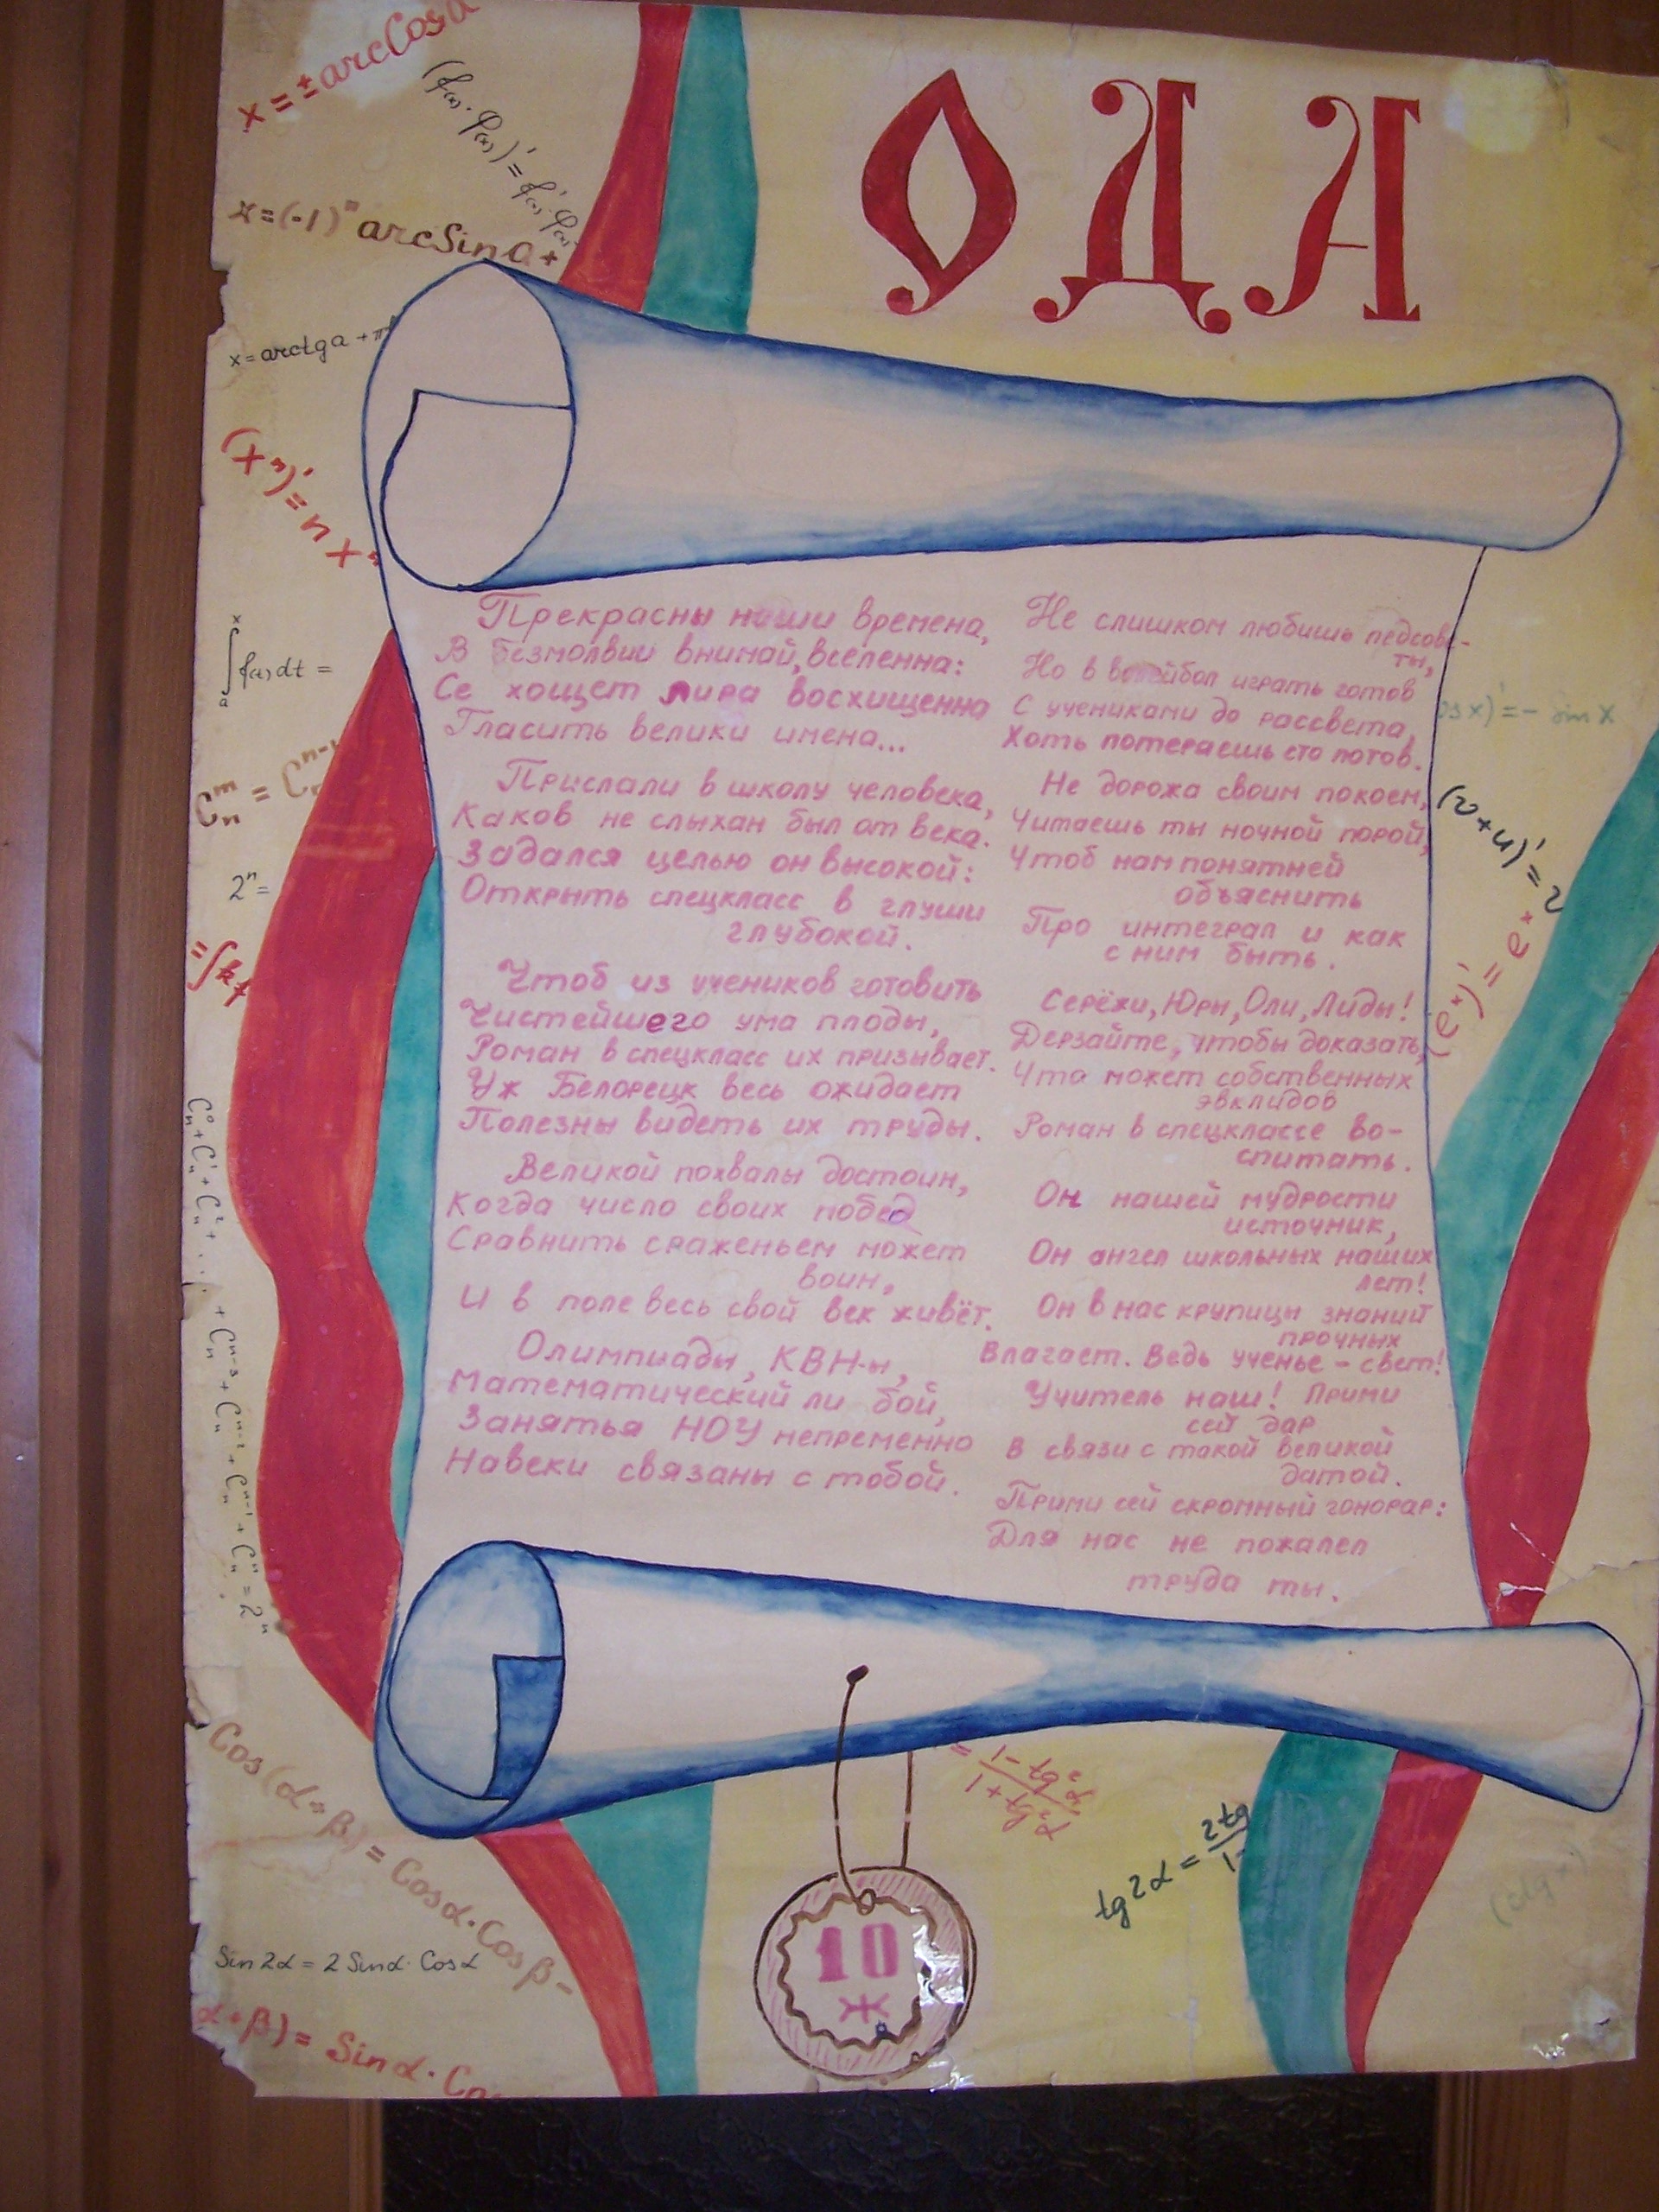 ОДА
x = ± arcCosa
(f(x)·φ(x))' = f'(x)·φ(x)
x=(-1)ⁿ arcSina +
x = arctga + π
(xⁿ)' = n xⁿ
∫ f(x) dt =
x
a
Cₙᵐ = Cₙⁿ⁻
2ⁿ =
= ∫ k f
Cₙ⁰+Cₙ¹+Cₙ²+...
+ Cₙⁿ⁻³ + Cₙⁿ⁻² + Cₙⁿ⁻¹ + Cₙⁿ = 2ⁿ
Прекрасны наши времена,
В безмолвии внимай, вселенна:
Се хощет лира восхищенна
Гласить велики имена...
Прислали в школу человека,
Каков не слыхан был от века.
Задался целью он высокой:
Открыть спецкласс в глуши
глубокой.
Чтоб из учеников готовить
Чистейшего ума плоды,
Роман в спецкласс их призывает.
Уж Белорецк весь ожидает
Полезны видеть их труды.
Великой похвалы достоин,
Когда число своих побед
Сравнить сраженьем может
воин,
И в поле весь свой век живёт.
Олимпиады, КВН-ы,
Математический ли бой,
Занятья НОУ непременно
Навеки связаны с тобой.
Не слишком любишь педсове-
ты,
Но в волейбол играть готов
С учениками до рассвета,
Хоть потеряешь сто потов.
Не дорожа своим покоем,
Читаешь ты ночной порой,
Чтоб нам понятней
объяснить
Про интеграл и как
с ним быть.
Серёжи, Юры, Оли, Лиды!
Дерзайте, чтобы доказать,
Что может собственных
эвклидов
Роман в спецклассе во-
спитать.
Он нашей мудрости
источник,
Он ангел школьных наших
лет!
Он в нас крупицы знаний
прочных
Влагает. Ведь ученье - свет!
Учитель наш! Прими
сей дар
В связи с такой великой
датой.
Прими сей скромный гонорар:
Для нас не пожалел
труда ты.
os x)' = - sin x
(v+u)' = v
(eˣ)' = eˣ
Cos(α+β) = Cosα·Cosβ-
Sin2α = 2 Sinα·Cosα
α+β) = Sinα·Cos
= 1-tg²α
1+tg²α
tg2α = 2tg
1-
(ctgx)
10
Ж